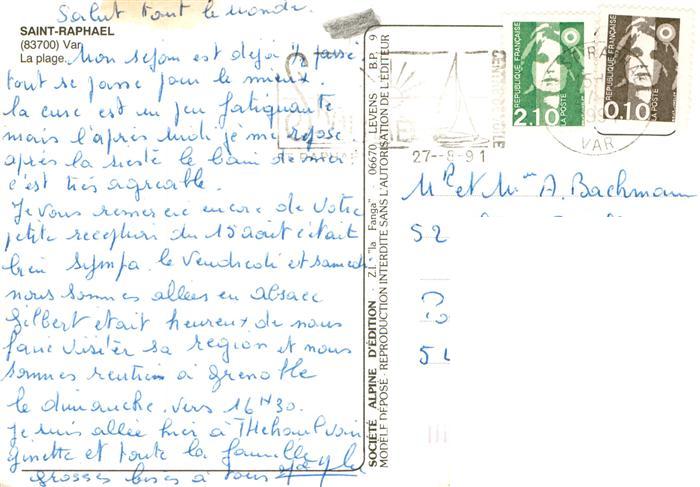 Salut tout le monde.
SAINT-RAPHAEL
(83700) Var
La plage.
Mon sejour est dejà ½ passé
tout se passe pour le mieux.
la cure est un peu fatiguante
mais l'après midi je me repose.
après la sieste le bain de mer
c'est très agreable.
Je vous remercie encore de votre
petite reception du 15 août c'était
bien sympa. le vendredi et samedi
nous sommes allées en Alsace
Gilbert etait heureux de nous
faire visiter sa region et nous
sommes rentrées à Grenoble
le dimanche. vers 16H30.
Je suis allée hier à Theoule voir
Ginette et toute la famille
grosses bises à tous
SOCIÉTÉ ALPINE D'ÉDITION - Z.I. "la Fanga" - 06670 LEVENS B.P. 9
MODÈLE DÉPOSÉ - REPRODUCTION INTERDITE SANS L'AUTORISATION DE L'ÉDITEUR
RÉPUBLIQUE FRANÇAISE
2,10
LA POSTE
RÉPUBLIQUE FRANÇAISE
0,10
LA POSTE
27--8-91
VAR
Mr et Mme A. Bachmann
52
51